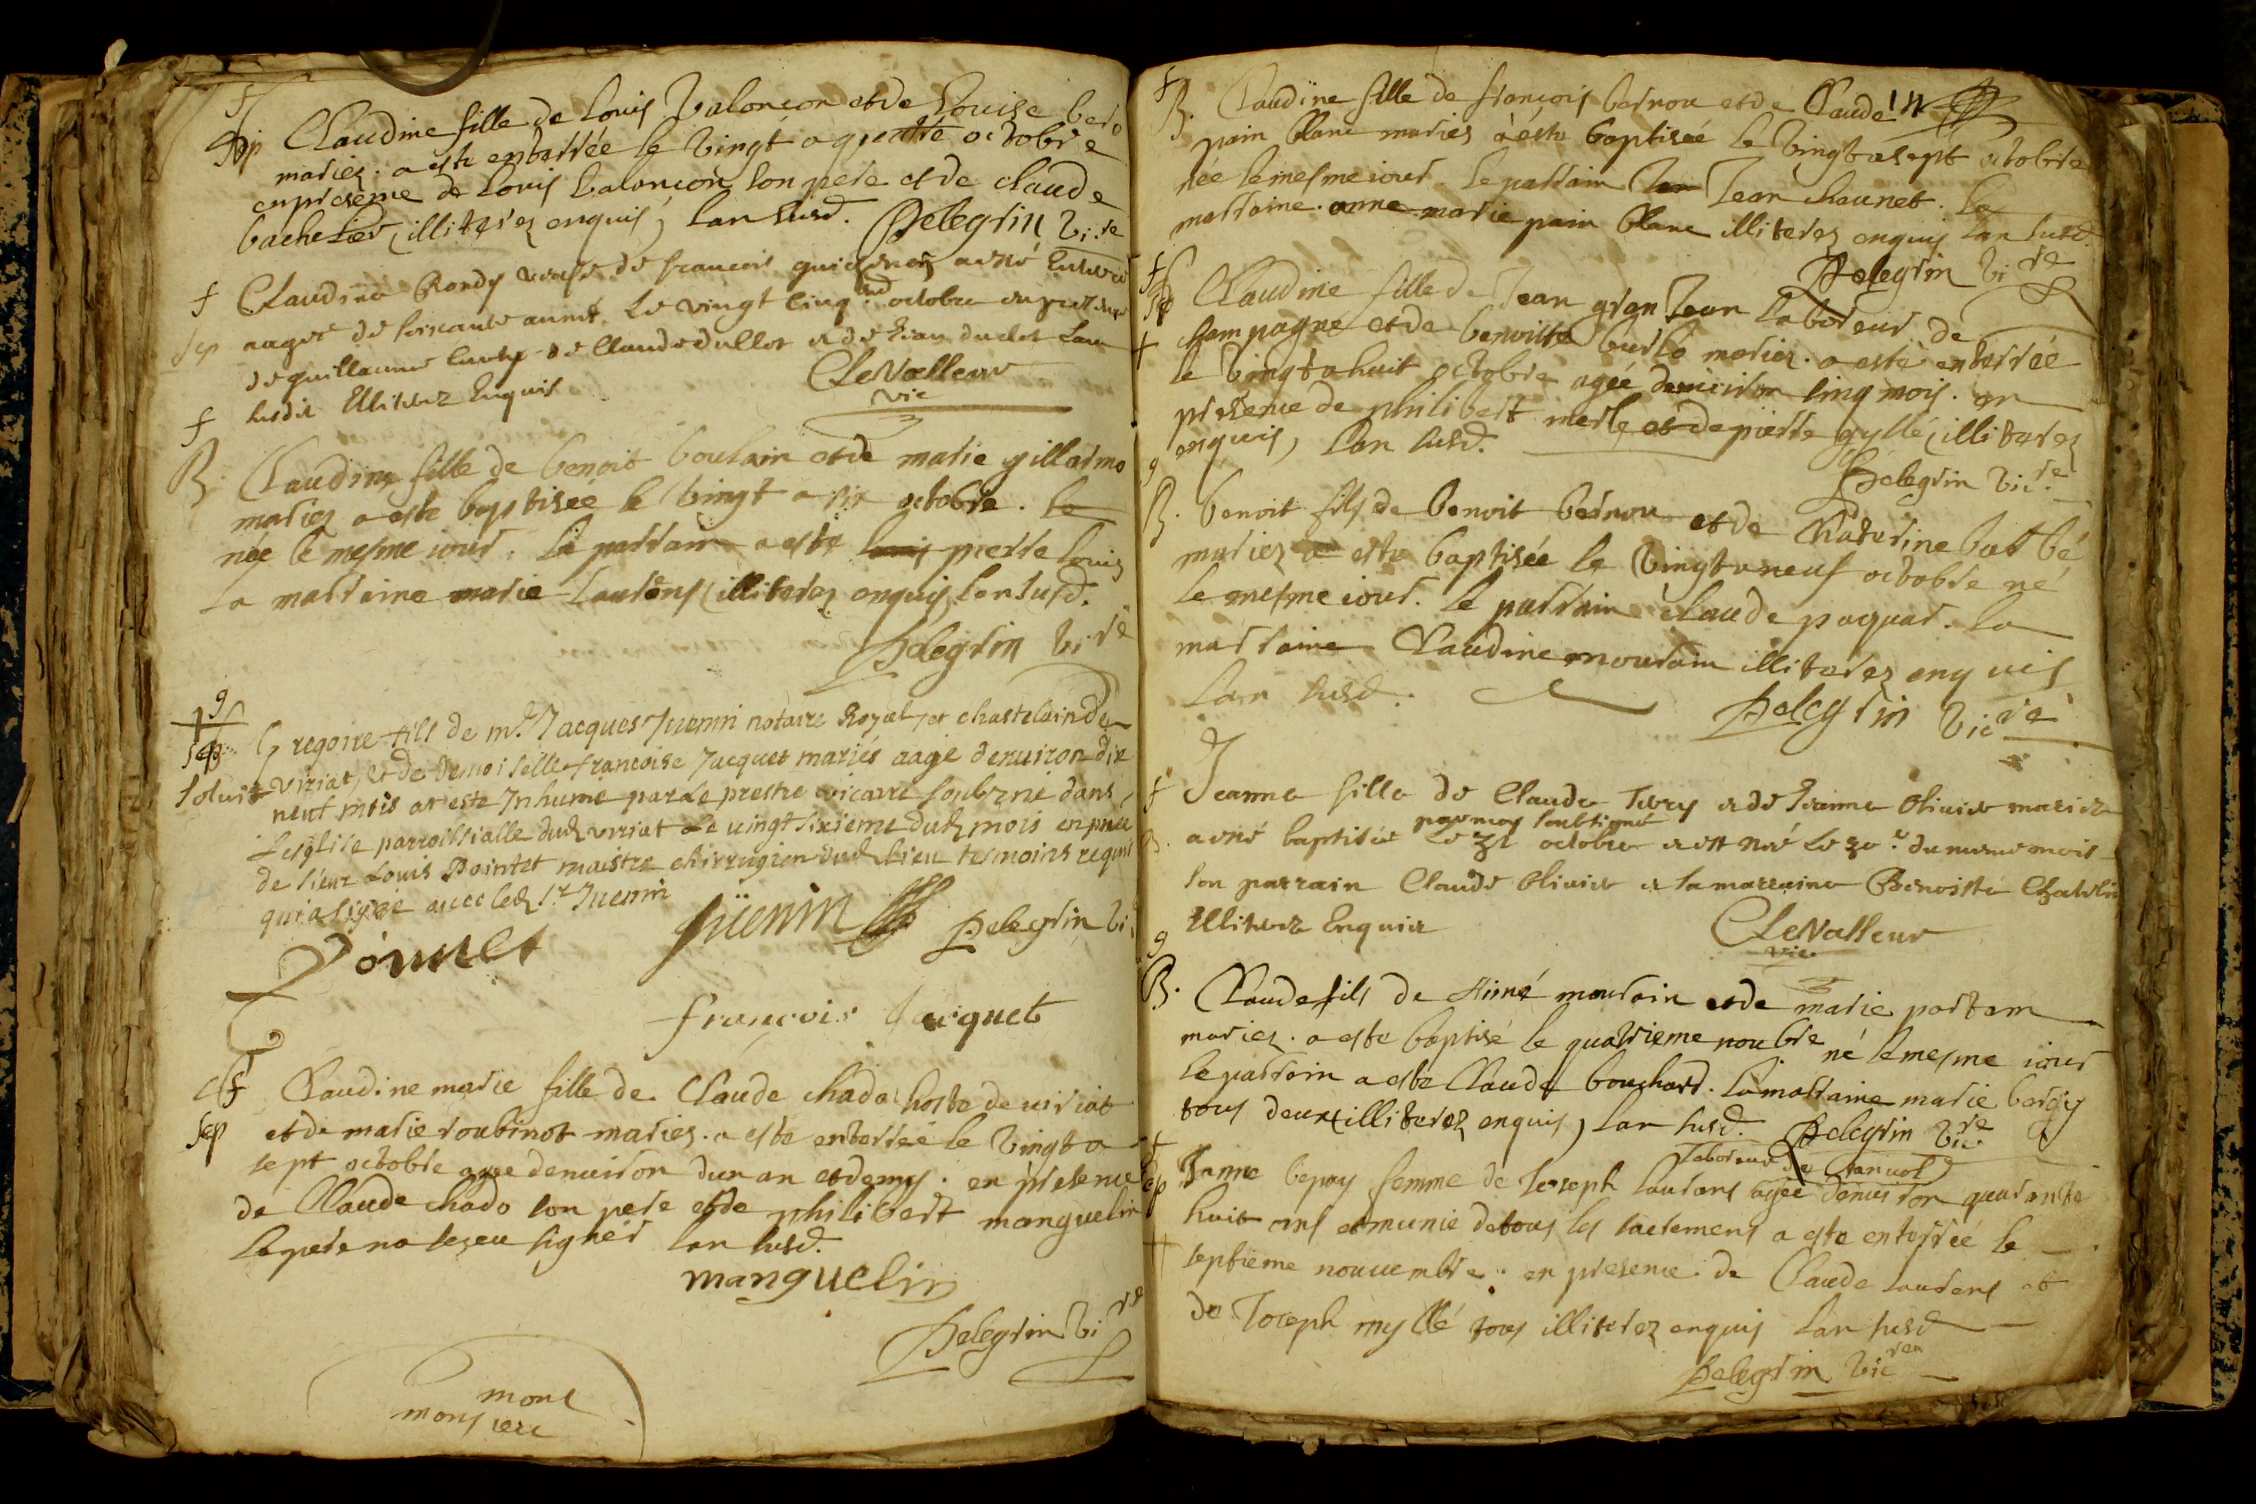 f
Sep Claudine fille de Louis Valançon et de Louise bero
mariez. a este enterrée le vingt a quatre octobre
en presence de Louis Valançon son pere et de claude
bachelier, illiterez enquis, lan susd. Pelegrin vi.re
f Claudine Rondy veufve de francois guichenon a esté Enterré
Sep aagee de soixante années Le vingt cinq octobre en presence
de guillaume de Claude dullot et de Jean dudot Lan
f susdit Illiterez Enquis CLeVasseur
vic
B. Claudine fille de benoit boulain et de marie gillarme
mariez a este baptisée le vingt a six octobre. le
née le mesme iour. Le parrain a este pierre louis
La marraine marie Laurens, illiterez enquis lan susd.
Pelegrin vi.re
g
Sep Gregoire fils de mr. Jacques Juenin notaire Royal et chastelain de
soluit Viriat, et de demoiselle francoise Jacquet mariés aagé denuiron dix
neuf mois at esté Inhumé par Le prestre vicaire soubzné dans
Lesglise parroissialle dud viriat Le vingt sixieme dud mois en pnce
de sieur Louis Pointet maistre chirrugien dud Lieu tesmoins requis
qui a signé auec led sr. Juenin
Poinct Jüenin Pelegrin vi
françois Jacquet
f Claudine marie fille de Claude chado hoste de viriat
Sep et de marie roubinot mariez. a este enterreé le vingt a
sept octobre agee denuiron dun an et demy. en presence
de Claude chado son pere et de philibert manguelin
Le pere na sceu signer lan susd.
manguelin
Pelegrin vi.re
mons
monsieur
f
B. Claudine fille de françois bernou et de Claude
pain blanc mariez a este baptiseé le vingt a sept octobre
née le mesme iour. le parrain Jean chaunet. La
marraine. anne marie pain blanc illiterez enquis lan susd.
Pelegrin vi.re
f
Sep Claudine fille de Jean gran Jean Laboreur de
+ Champagne et de benoitte burlé mariez. a este enterrée
le vingt a huit octobre ageé denuiron cinq mois. en
presence de philibert merle et de pierre gyllé, illiterez
enquis, lan susd.
Pelegrin vic.re
g
B. benoit fils de benoit bernou et de Chaterine barbé
mariez a este baptisée le vingt a neuf octobre né
le mesme iour. le parrain claude paquar. La
marraine Claudine mourain illiterez enquis
lan susd.
Pelegrin vic.re
f Jeanne fille de Claude Tivry et de Jeanne Olivier mariez
par moy soubsigné
B. a esté baptisée Le 31 octobre et est née Le 30e du mesme mois
son parrain Claude Olivier et sa marraine Benoiste Chatelin
Illiterez Enquis
CLeVasseur
vic
g
B. Claude fils de Aimé mourain et de marie portam
mariez. a este baptisé le quatrieme noubre né le mesme iour
le parrain a este Claude bouchard. la marraine marie bergy
tous deux illiterez enquis, lan susd. Pelegrin vic.re
Laboreur de
Sep Janne bepoy femme de Joseph laurens ageé denuiron quarante
huit ans et munie de tous les sacremens a este enterreé le
septieme nouuembre. en presence de Claude Laurens et
de Joseph myllé tous illiterez enquis lan susd
Pelegrin vic.re